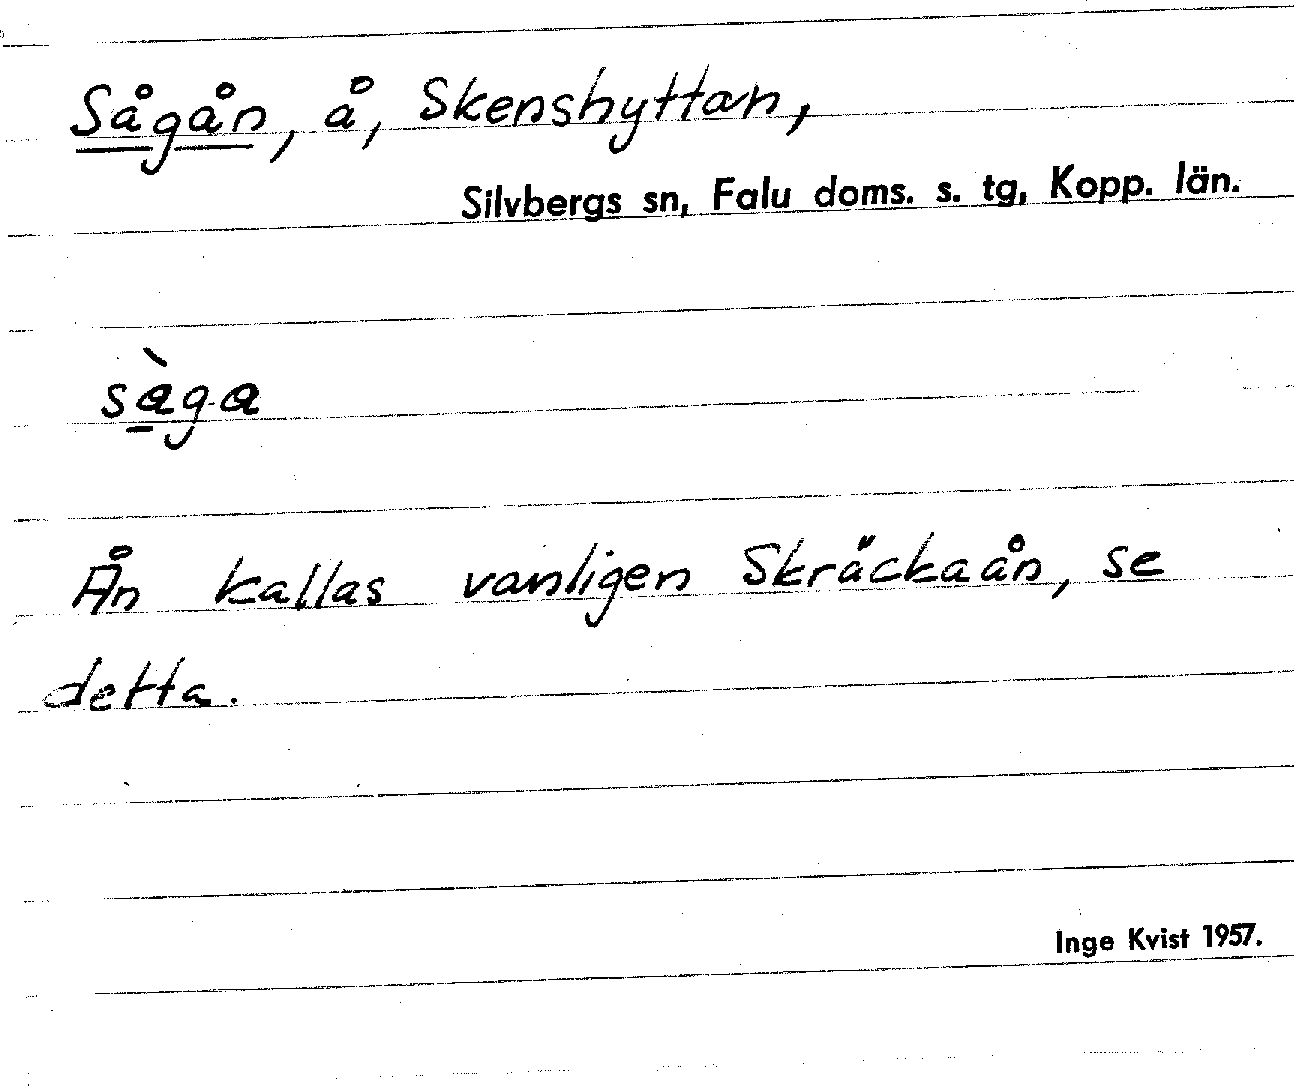 Sågån, å, Skenshyttan,
Silvbergs sn, Falu doms. s. tg, Kopp. län.
sàga
Ån kallas vanligen Skräckaån, se
detta.
Inge Kvist 1957.